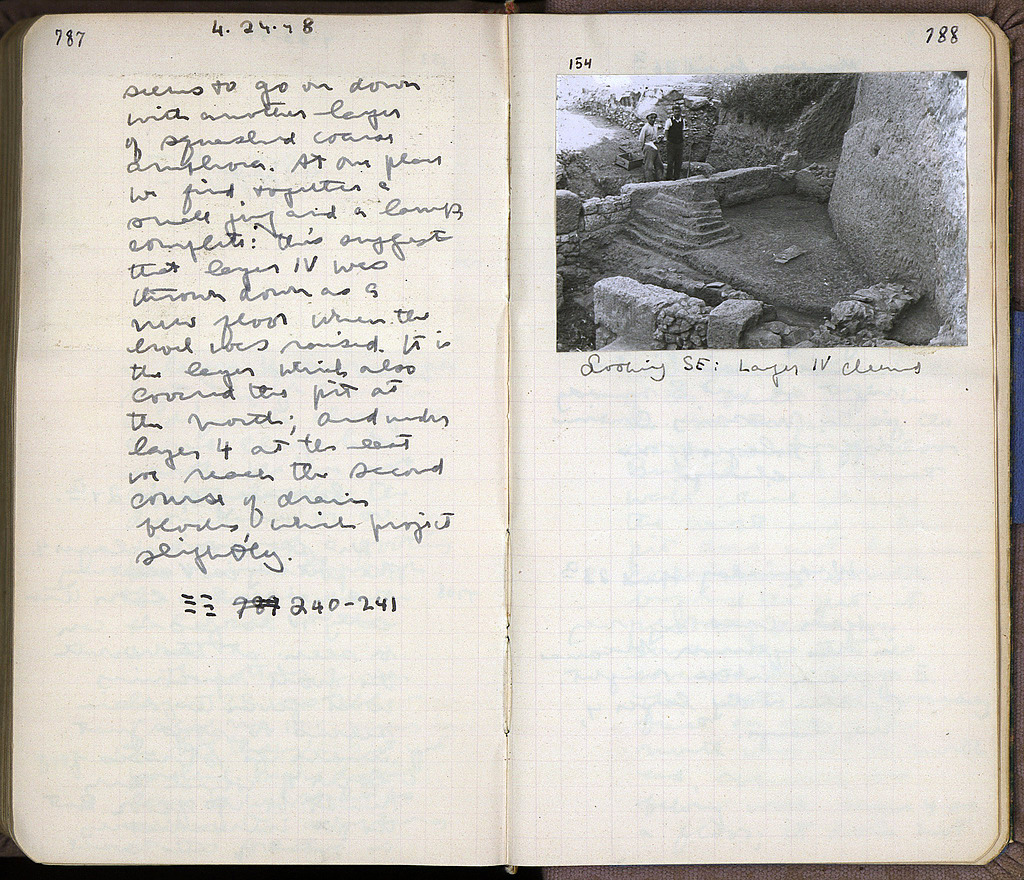 787
4.24.48
seems to go on down
with another layer
of squashed coarse
amphora. At one place
we find together a
small jug and a lamp
complete: this suggest
that layer IV was
thrown down as a
new floor when the
level was raised. It is
the layer which also
covered the pit at
the north; and under
layer 4 at the east
we reach the second
course of drain
blocks, which project
slightly.
ΞΞ 787 240-241
788
154
Looking SE: Layer IV cleared